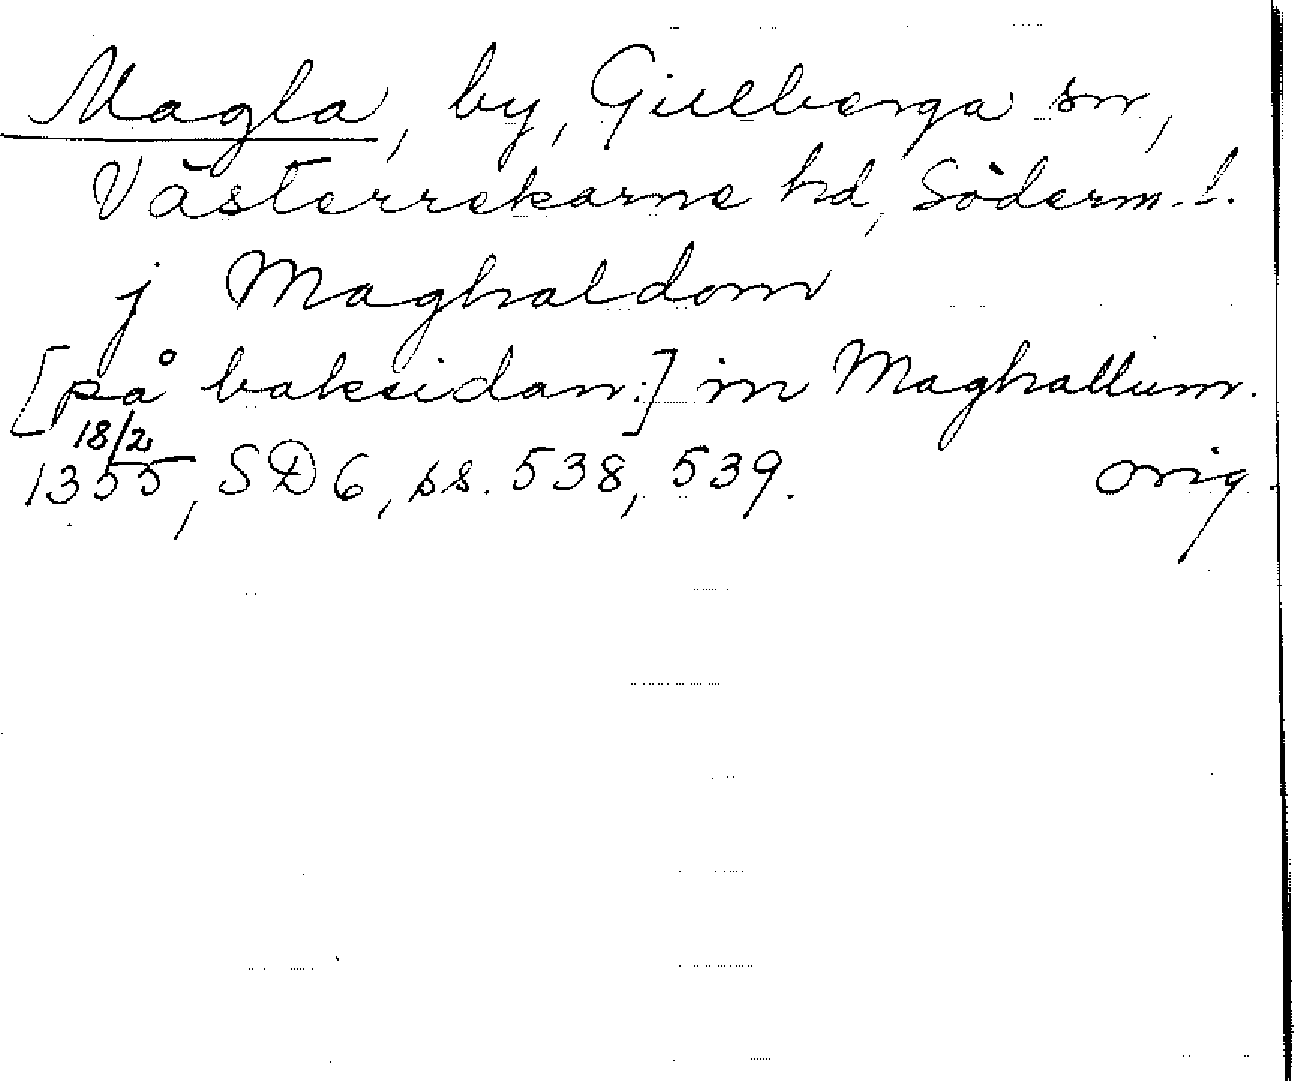 Magla, by, Gillberga sn,
Västerrekarne hd, Söderm. l.
j Maghaldom
[på baksidan:] in Maghallum.
18/2
1355, SD 6, ss. 538, 539. orig.